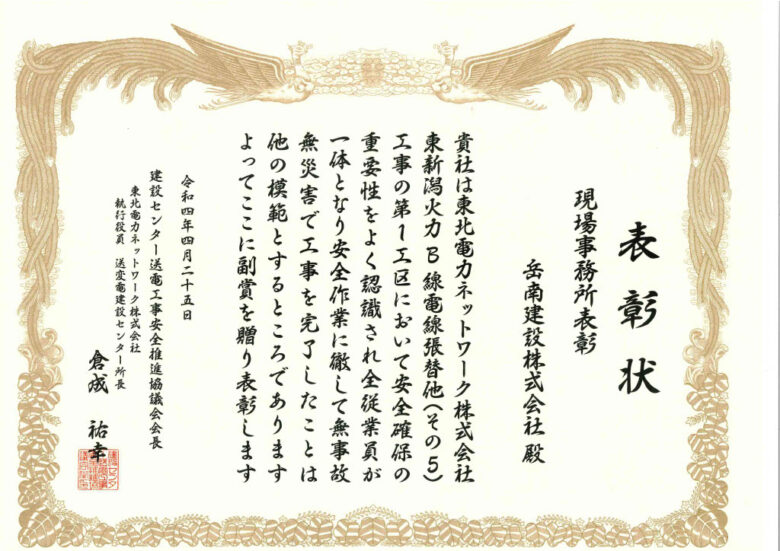 表彰状
現場事務所表彰
岳南建設株式会社 殿
貴社は東北電力ネットワーク株式会社
東新潟火力B線電線張替他(その5)
工事の第1工区において安全確保の
重要性をよく認識され全従業員が
一体となり安全作業に徹して無事故
無災害で工事を完了したことは
他の模範とするところであります
よってここに副賞を贈り表彰します
令和四年四月二十五日
建設センター送電工事安全推進協議会会長
東北電力ネットワーク株式会社
執行役員 送変電建設センター所長
倉成 祐幸